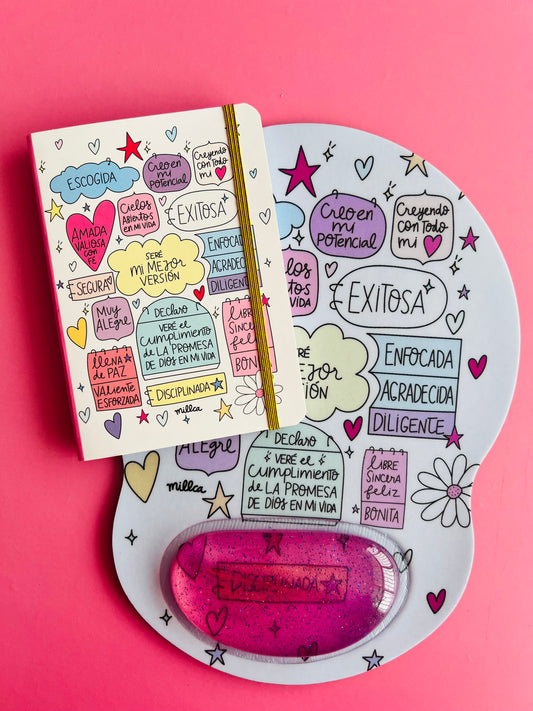 ESCOGIDA
Creo en
mi
POTENCIAL
Creyendo
con Todo
mi
AMADA
VALIOSA
CON
FÉ
Cielos
ABIERTOS
EN MI VIDA
EXITOSA
SERÉ
MI MEJOR
VERSIÓN
ENFOCADA
AGRADECIDA
DILIGENTE
SEGURA
Muy
ALEGRE
DECLARO
VERÉ EL
CUMPLIMIENTO
DE LA PROMESA
DE DIOS EN MI VIDA
LIBRE
SINCERA
feliz
BONITA
llena
de PAZ
VALIENTE
ESFORZADA
DISCIPLINADA
millca
Creo en
mi
POTENCIAL
Creyendo
con Todo
mi
LOS
RTOS
VIDA
EXITOSA
RÉ
EJOR
SIÓN
ENFOCADA
AGRADECIDA
DILIGENTE
ALEGRE
DECLARO
VERÉ EL
CUMPLIMIENTO
DE LA PROMESA
DE DIOS EN MI VIDA
LIBRE
SINCERA
feliz
BONITA
millca
DISCIPLINADA